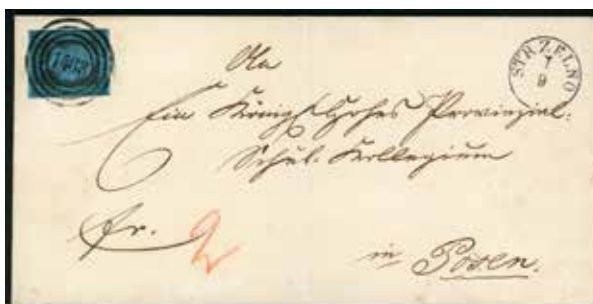 STRZELNO
7
9
An
Ein Königl. Hohes Provinzial-
Schul-Kollegium
fr.
in Posen.